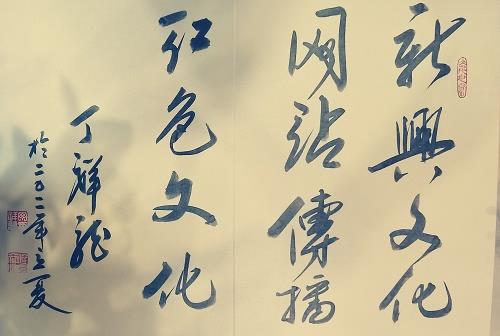 新興文化
网站傳播
红色文化
丁祥龙
於二〇二一年立夏